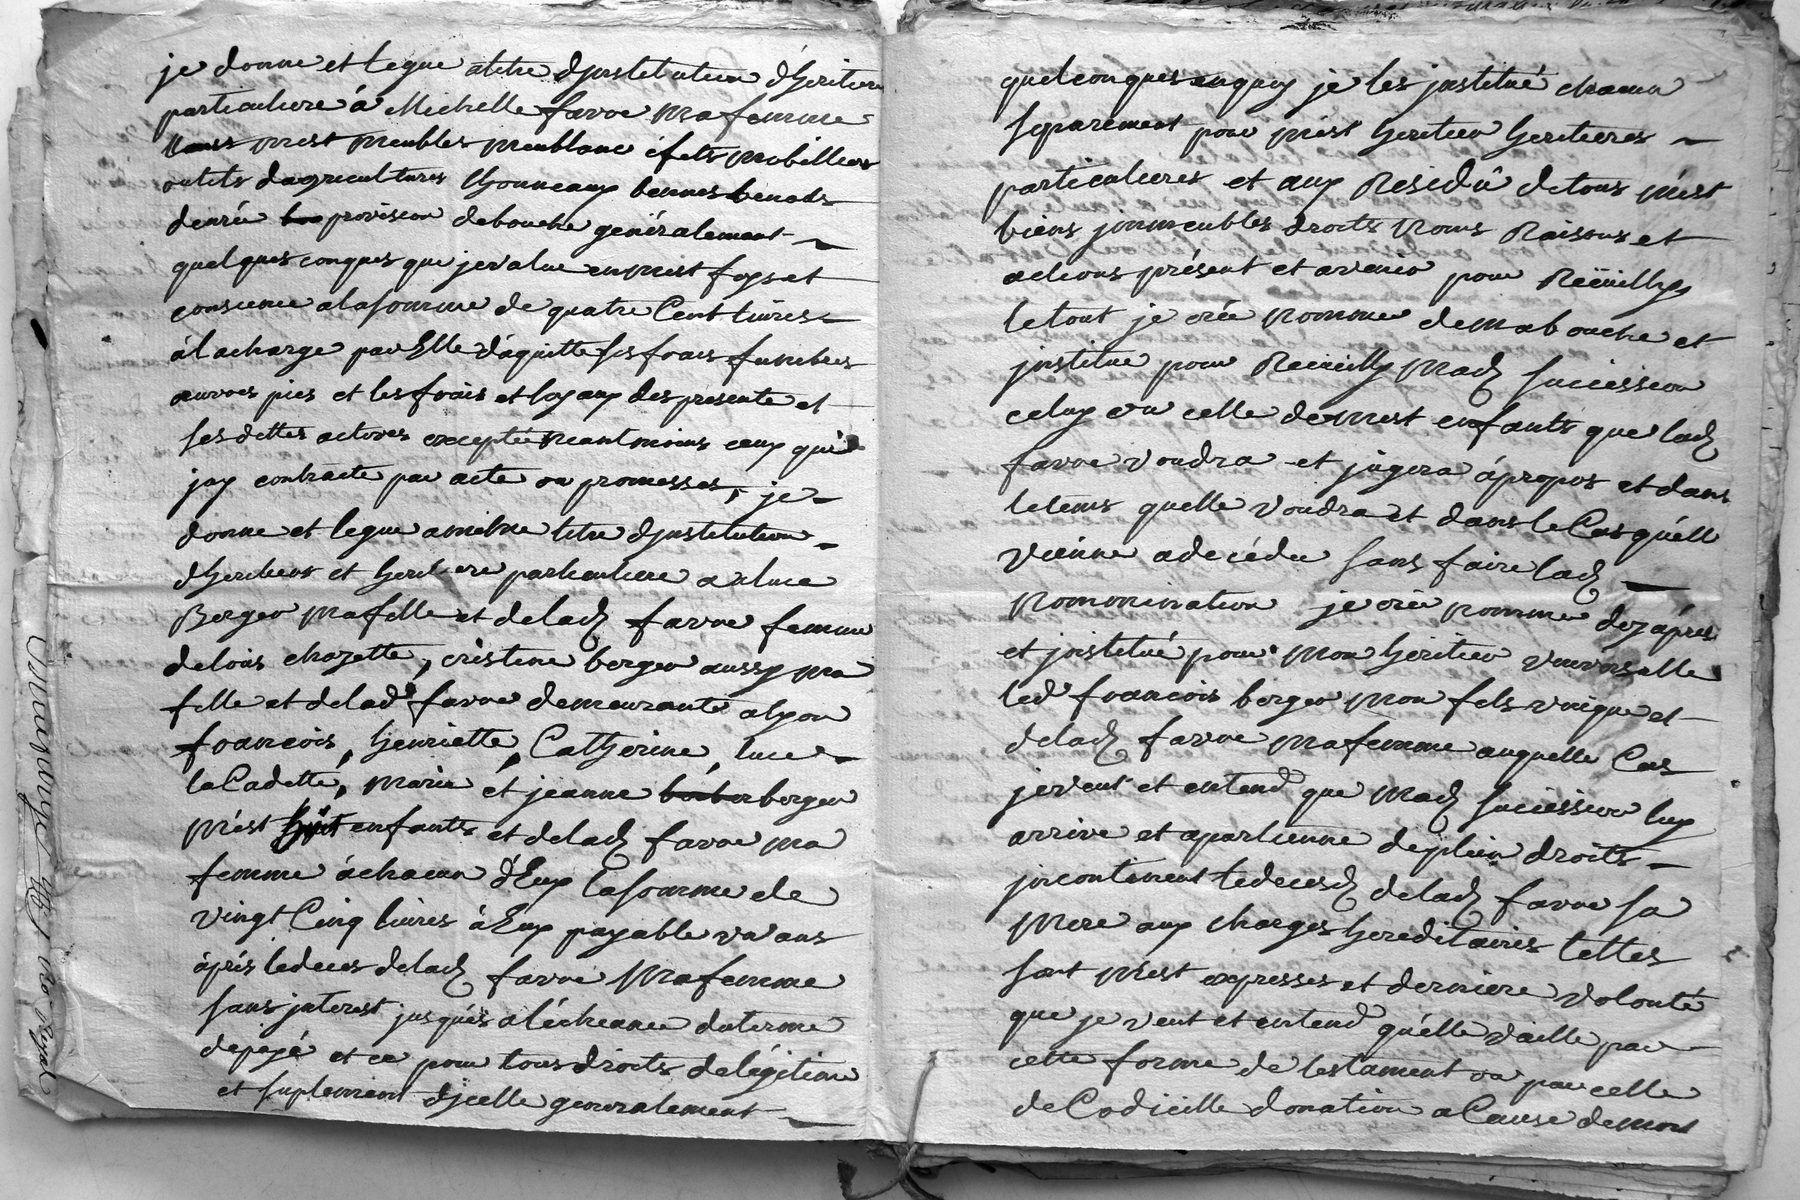 je donne et legue atitre djnstitution dheritiere
particuliere á Michelle favre ma femme
tous mest meubles meublant éfets mobilliers
outils dagricultures thonneaux bennes benots
denrée provision debouche genéralement
quelques conques que jevalue en mest foys et
consience ala somme de quatre Cent livres
á la charge par Elle d'aquitte ses frais funebres
œuvres pies et les frais et loyaux des presente et
ses dettes actives exceptée neantmoins ceux qué
jay contracte par acte ou promesses, je
donne et legue a même titre djnstitution
dheritiers et heritiere particuliere a luce
Berger ma fille et de lad favre femme
de loüis chozette, cristine berger aussy ma
fille et delad favre demeurante alyon
francois, henriette, Catherine, luce
la Cadette, marie et jeanne berger
mést huit enfants et delad favre ma
femme á chacun d'Eux la somme de
vingt Cinq livres á Eux payable un ans
áprés ledeces delad favre ma femme
sans jnterest jusqués a léchéance duterme
depéjé et ce pour tous droits delégitime
et suplement djcelle generalement
quelconques enquoy je les jnstitué chacun
séparément pour mést heritier heritieres
particulieres et aux Residû detous mést
biens jmmeubles droits Noms Raisons et
actions présent et avenir pour Reüillyr
letout je crée nomme de ma bouche et
jnstitue pour Recüeilly mad succession
celuy ou celle de mest enfants que lad
favre voudra et jugera ápropos et dans
letems quelle voudra et dans le Cas quélle
vienne a decédér sans faire lad
nommination je crée nomme dez ápres
et jnstitué pour mon hériter universelle
led francois berger mon fils unique et
delad favre ma femme auquelle Cas
je veut et entend que mad succession luy
arrive et apartienne deplein droits
jncontinent ledecesd delad favre sa
mere aux charges hereditaires telles
sont mést expresses et derniere volonté
que je veut et entend quélle vaille par
cette forme de testament ou par celle
de Codicille donation a Cause de mort